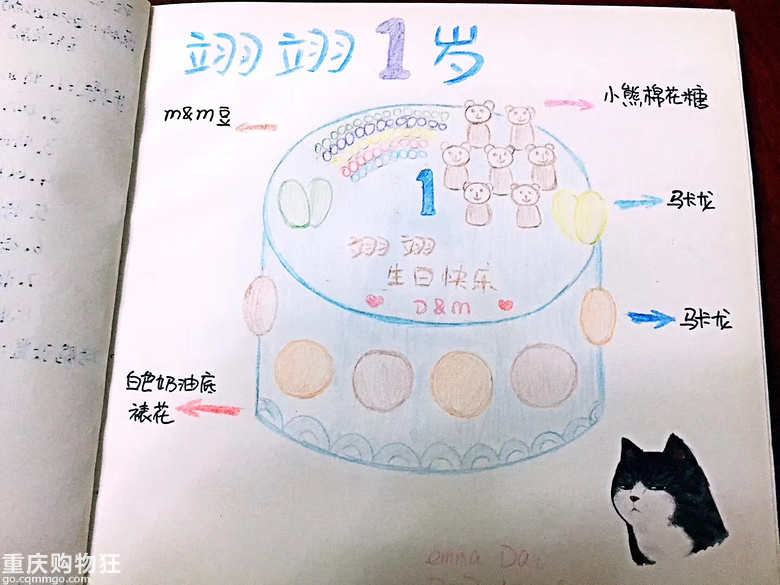 翊翊1岁
m&m豆
小熊棉花糖
1
马卡龙
翊翊
生日快乐
D&M
马卡龙
白色奶油底
裱花
emma Dai
重庆购物狂
go.cqmmgo.com